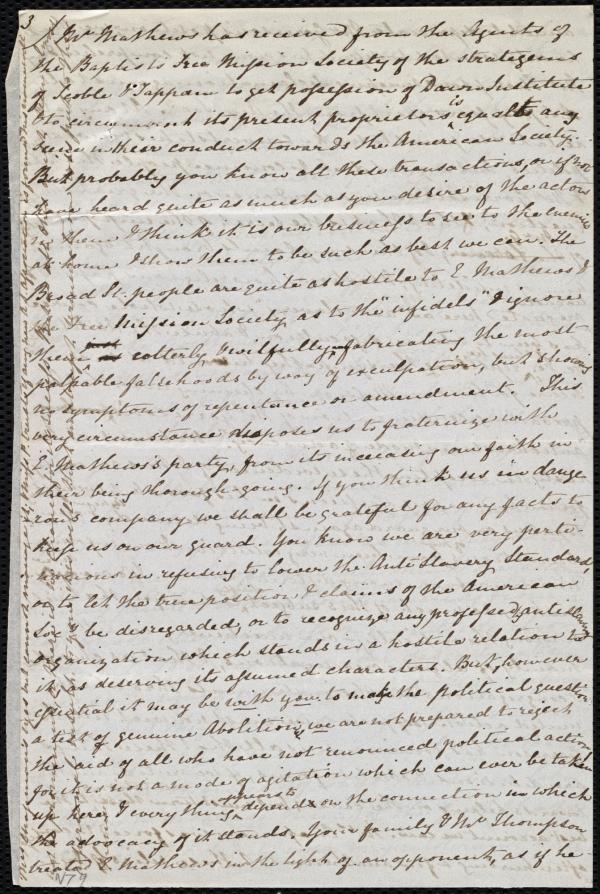 3
Mr Mathews has received from the Agents of
the Baptists Free Mission Society of the stratagems
of Scoble & Tappan to get possession of Dawn Institute
& to circumvent its present proprietors is equal to any
seen in their conduct towards the American Society.
But probably you know all these transactions, or if not
have heard quite as much as you desire of the actors
in them I think it is our business to see to the Enemies
at home & show them to be such as best we can. The
Broad St. people are quite as hostile to E. Mathews &
the Free Mission Society as to the "infidels" & ignore
them utterly, & wilfully, fabricating the most
palpable falsehoods by way of exculpation, but showing
no symptoms of repentance or amendment. This
very circumstance disposes us to fraternize with
E. Mathews's party, from its increasing our faith in
their being thorough-going. If you think us in dange
rous company we shall be grateful for any facts to
keep us on our guard. You know we are very perti-
nacious in refusing to lower the Anti Slavery Standard,
or to let the true position & claims of the American
Soc. be disregarded, or to recognize any professedly antislavery
organization which stands in a hostile relation to
it, as deserving its assumed characters. But, however
essential it may be with you to make the political question
a test of genuine Abolition, we are not prepared to reject
the aid of all who have not renounced political action,
for it is not a mode of agitation which can ever be taken
up here, & every thing depends on the connection in which
the advocacy of it stands. Your family & Mr Thompson
treated E. Mathews in the light of an opponent, as if he
N79